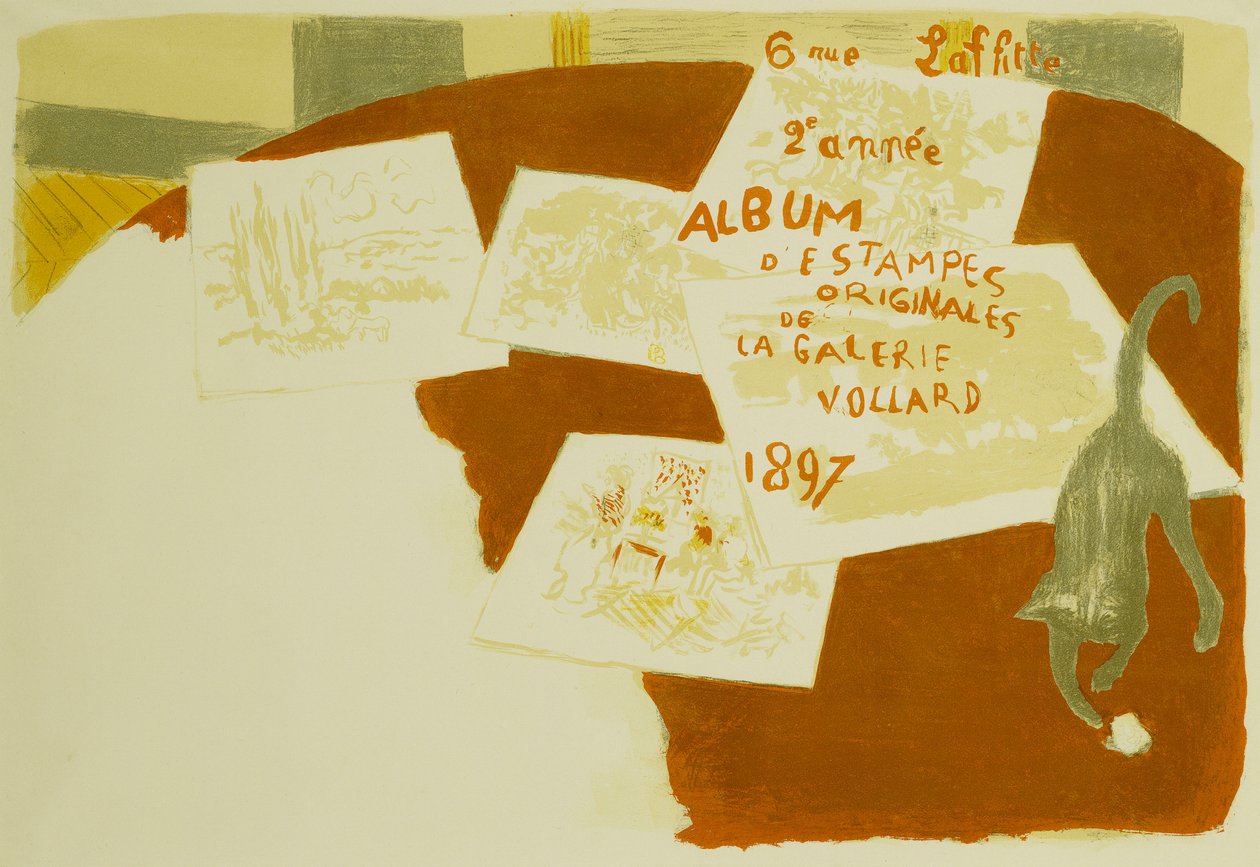 6 rue Laffitte
2e année
ALBUM
D'ESTAMPES
ORIGINALES
DE
LA GALERIE
VOLLARD
1897